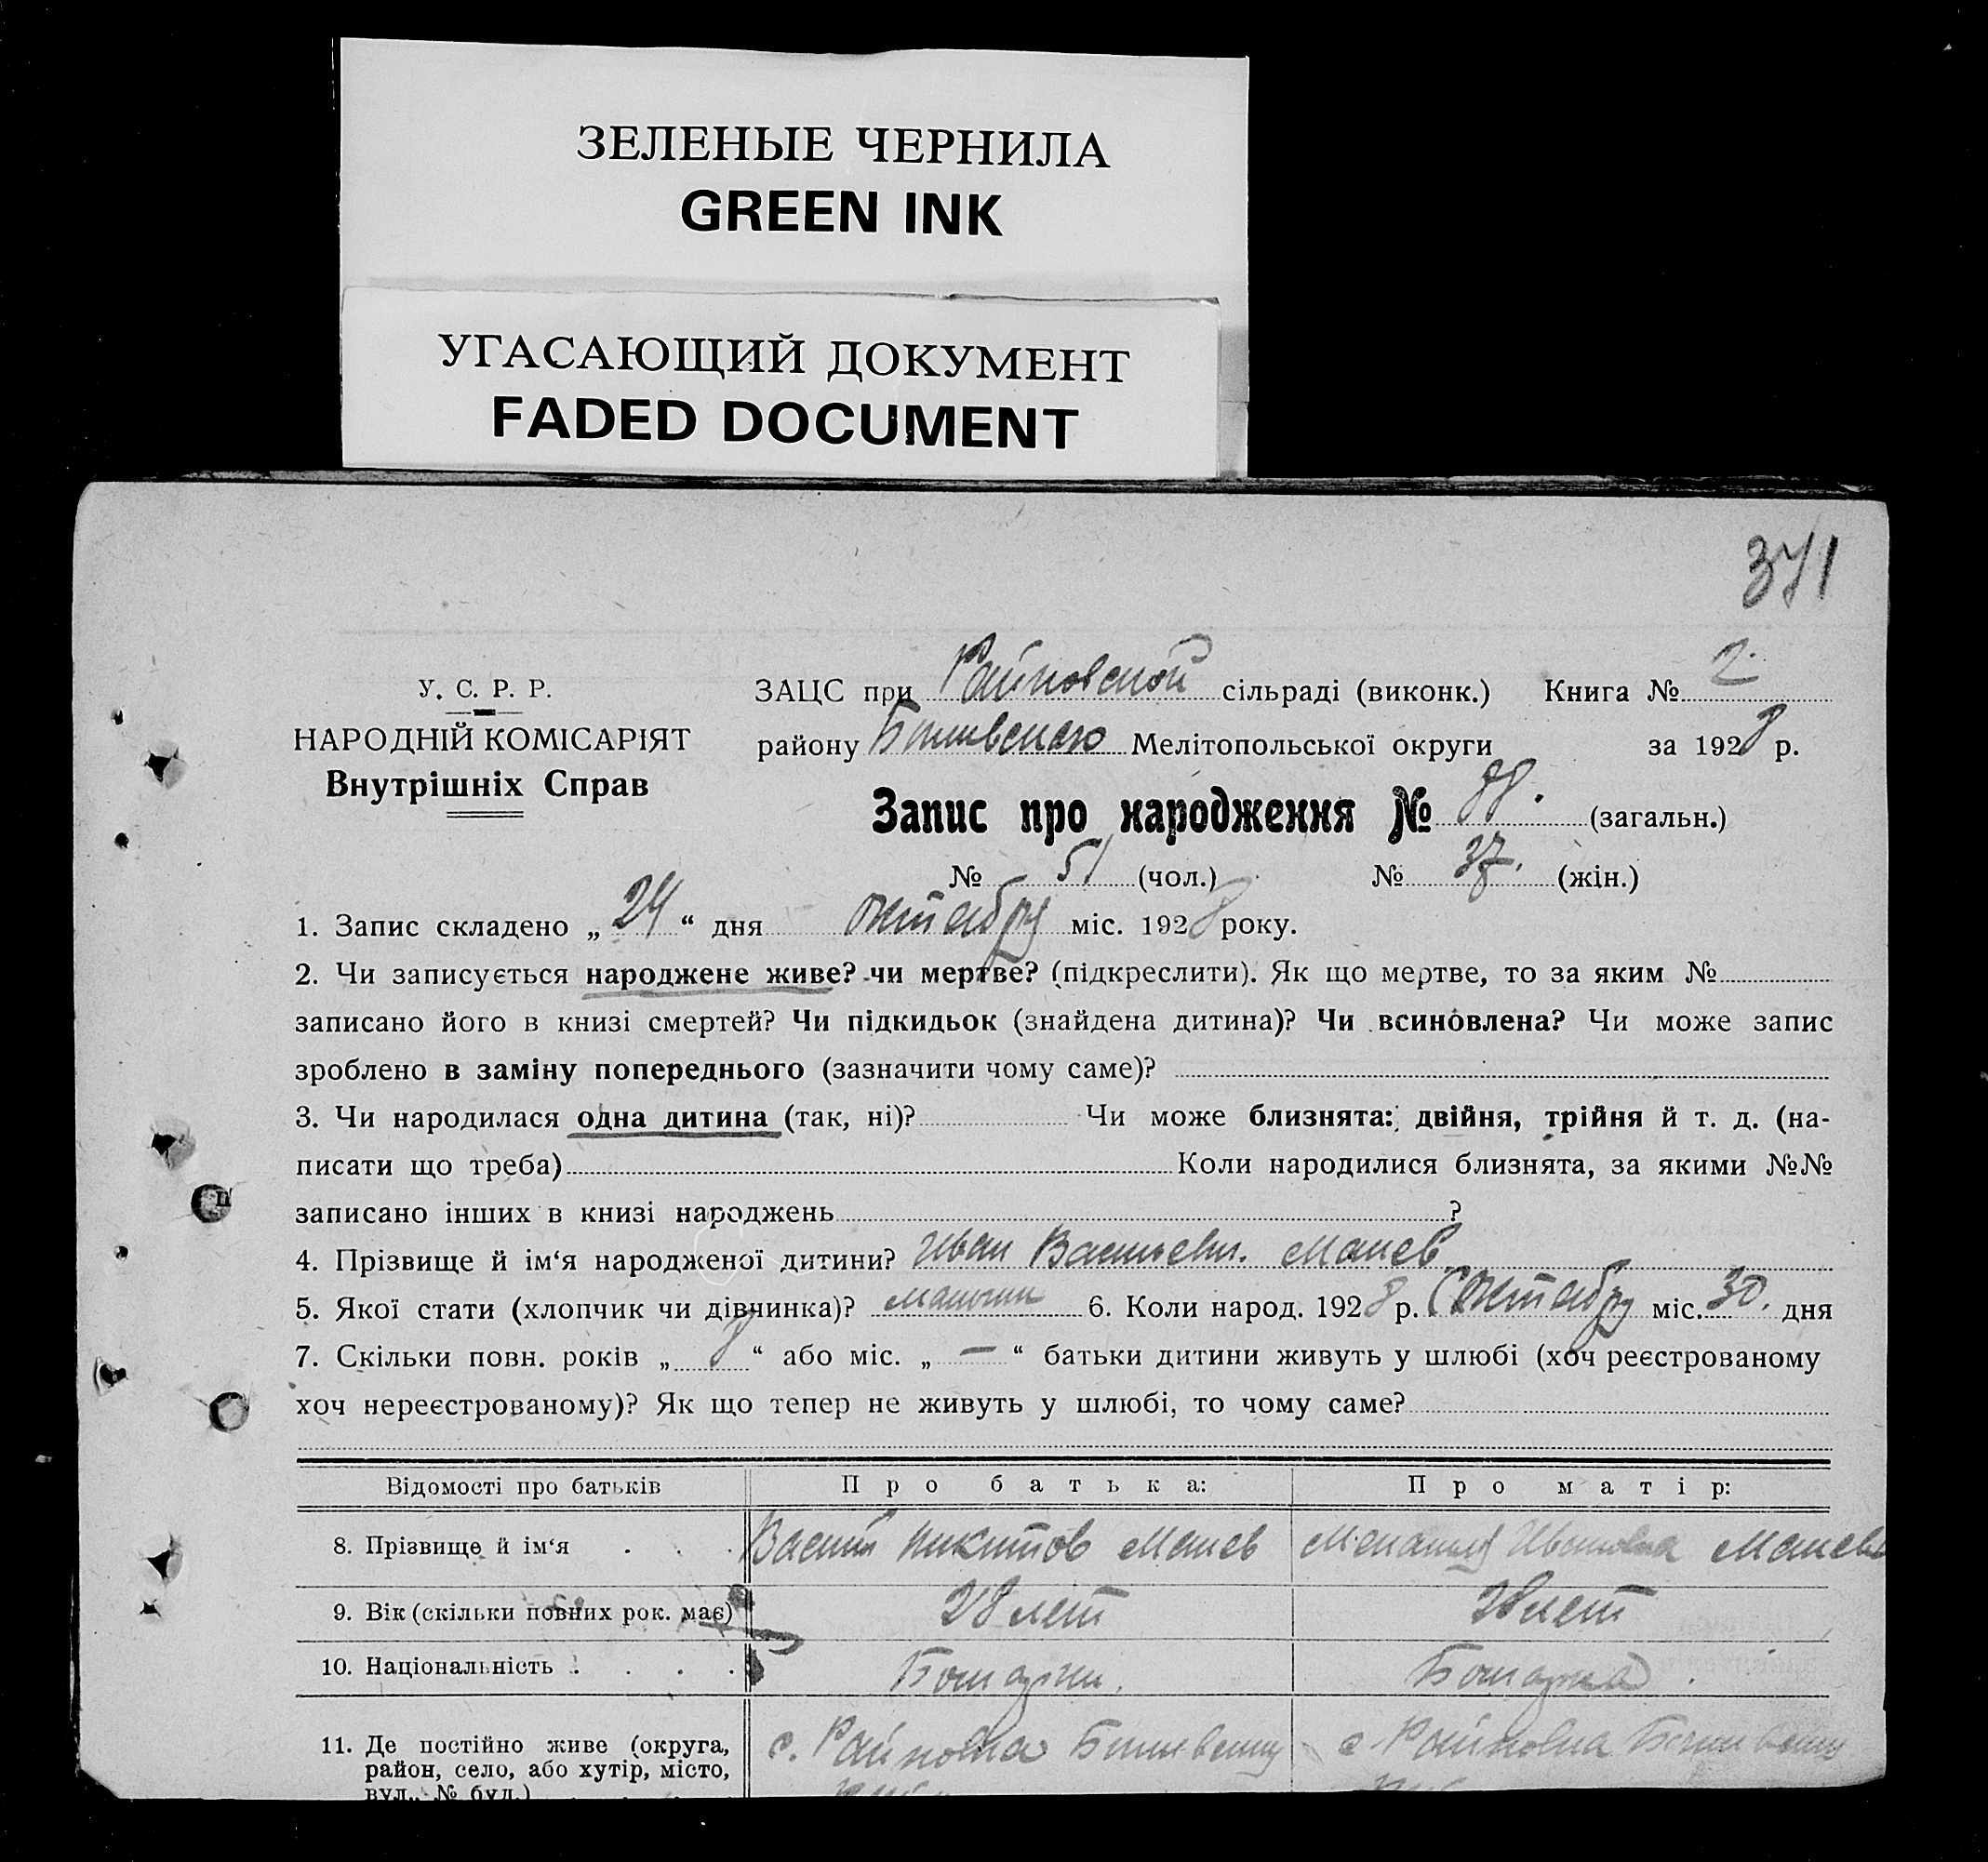 ЗЕЛЕНЫЕ ЧЕРНИЛА
GREEN INK
УГАСАЮЩИЙ ДОКУМЕНТ
FADED DOCUMENT
371
У. С. Р. Р.
НАРОДНІЙ КОМІСАРІЯТ
Внутрішніх Справ
ЗАЦС при Райновской сільраді (виконк.) Книга № 2
району Мелітопольської округи за 1928 р.
Запис про народження № 88. (загальн.)
№ 51 (чол.) № 37. (жін.)
1. Запис складено „ 24 “ дня октября міс. 1928 року.
2. Чи записується народжене живе? чи мертве? (підкреслити). Як що мертве, то за яким №
записано його в книзі смертей? Чи підкидьок (знайдена дитина)? Чи всиновлена? Чи може запис
зроблено в заміну попереднього (зазначити чому саме)?
3. Чи народилася одна дитина (так, ні)? Чи може близнята: двійня, трійня й т. д. (на-
писати що треба) Коли народилися близнята, за якими №№
записано інших в книзі народжень ?
4. Прізвище й ім‘я народженої дитини? Иван Васильев.
5. Якої стати (хлопчик чи дівчинка)? 6. Коли народ. 1928 р. Октября міс. 30. дня
7. Скільки повн. років „ 8 “ або міс. „ — “ батьки дитини живуть у шлюбі (хоч реєстрованому
хоч нереєстрованому)? Як що тепер не живуть у шлюбі, то чому саме?
Відомості про батьків Про батька: Про матір:
8. Прізвище й ім‘я . . . Никитов Ивановна
9. Вік (скільки повних рок. має) 28 лет 28 лет
10. Національність . . . .
11. Де постійно живе (округа, с. Райновка с Райновка
район, село, або хутір, місто,
вул., № буд.)